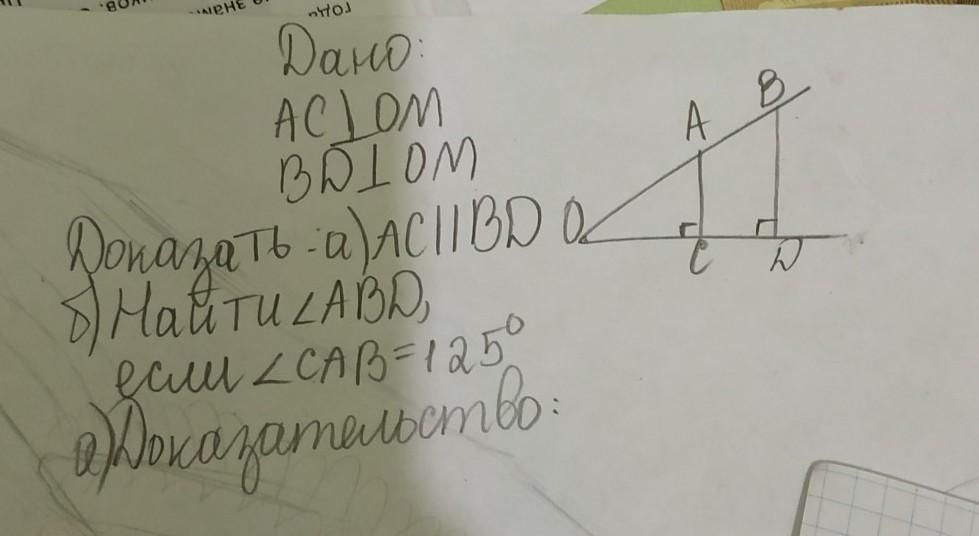 Дано:
AC⊥OM
BD⊥OM
Доказать: а) AC||BD
б) Найти ∠ABD,
если ∠CAB=125°
а) Доказательство:
B
A
O
C
D